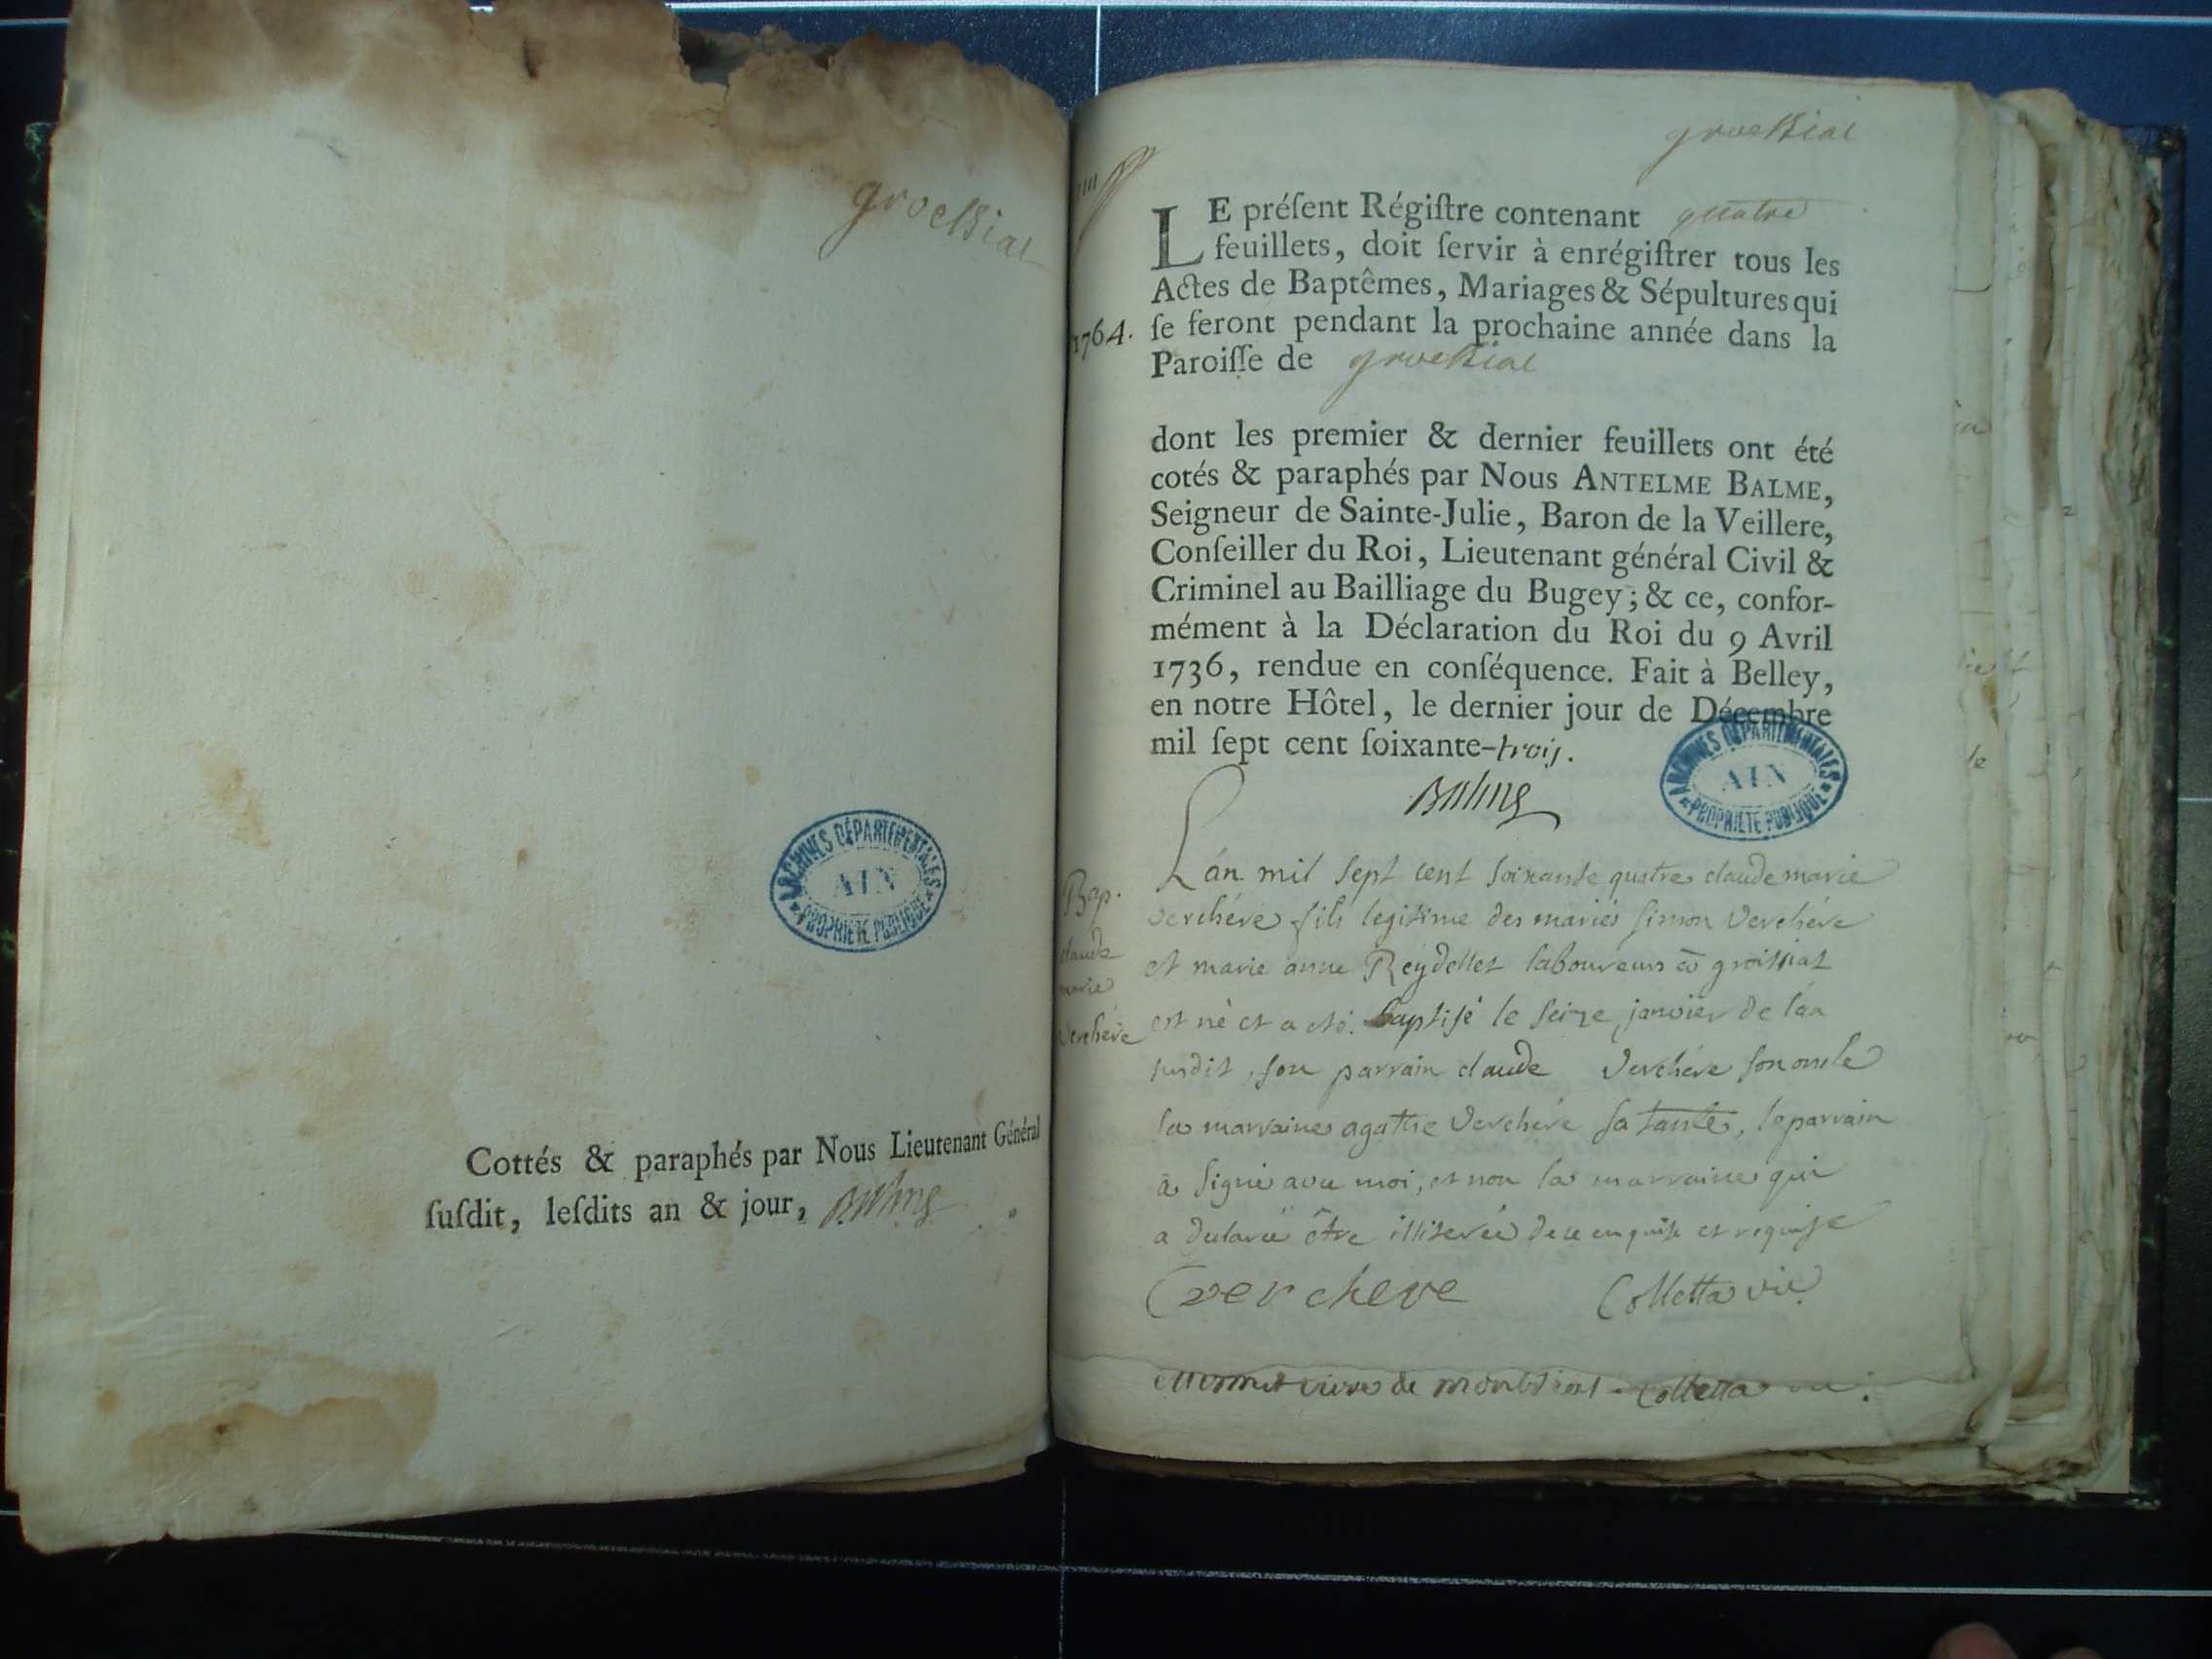 groissiat
Cottés & paraphés par Nous Lieutenant Général
ſuſdit, leſdits an & jour, Balme
ARCHIVES DÉPARTEMENTALES
AIN
PROPRIÉTÉ PUBLIQUE
groissiat
LE préſent Régiſtre contenant quatre
feuillets, doit ſervir à enrégiſtrer tous les
Actes de Baptêmes, Mariages & Sépultures qui
1764. ſe feront pendant la prochaine année dans la
Paroiſſe de groissiat
dont les premier & dernier feuillets ont été
cotés & paraphés par Nous ANTELME BALME,
Seigneur de Sainte-Julie, Baron de la Veillere,
Conſeiller du Roi, Lieutenant général Civil &
Criminel au Bailliage du Bugey; & ce, confor-
mément à la Déclaration du Roi du 9 Avril
1736, rendue en conſéquence. Fait à Belley,
en notre Hôtel, le dernier jour de Décembre
mil ſept cent ſoixante-trois.
Balme
ARCHIVES DÉPARTEMENTALES
AIN
PROPRIÉTÉ PUBLIQUE
Bap.
claude
marie
verchére
L'an mil sept cent soixante quatre claude marie
verchére fils legitime des mariés simon verchére
et marie anne Reydellet laboureurs à groissiat
est né et a eté baptisé le seize janvier de l'an
susdit, son parrain claude verchére son oncle
sa marraine agathe verchére sa tante, le parrain
à signé avec moi, et non la marraine qui
a declaré être illiterée de ce enquise et requise
C verchere Colletta vic.
de Colletta